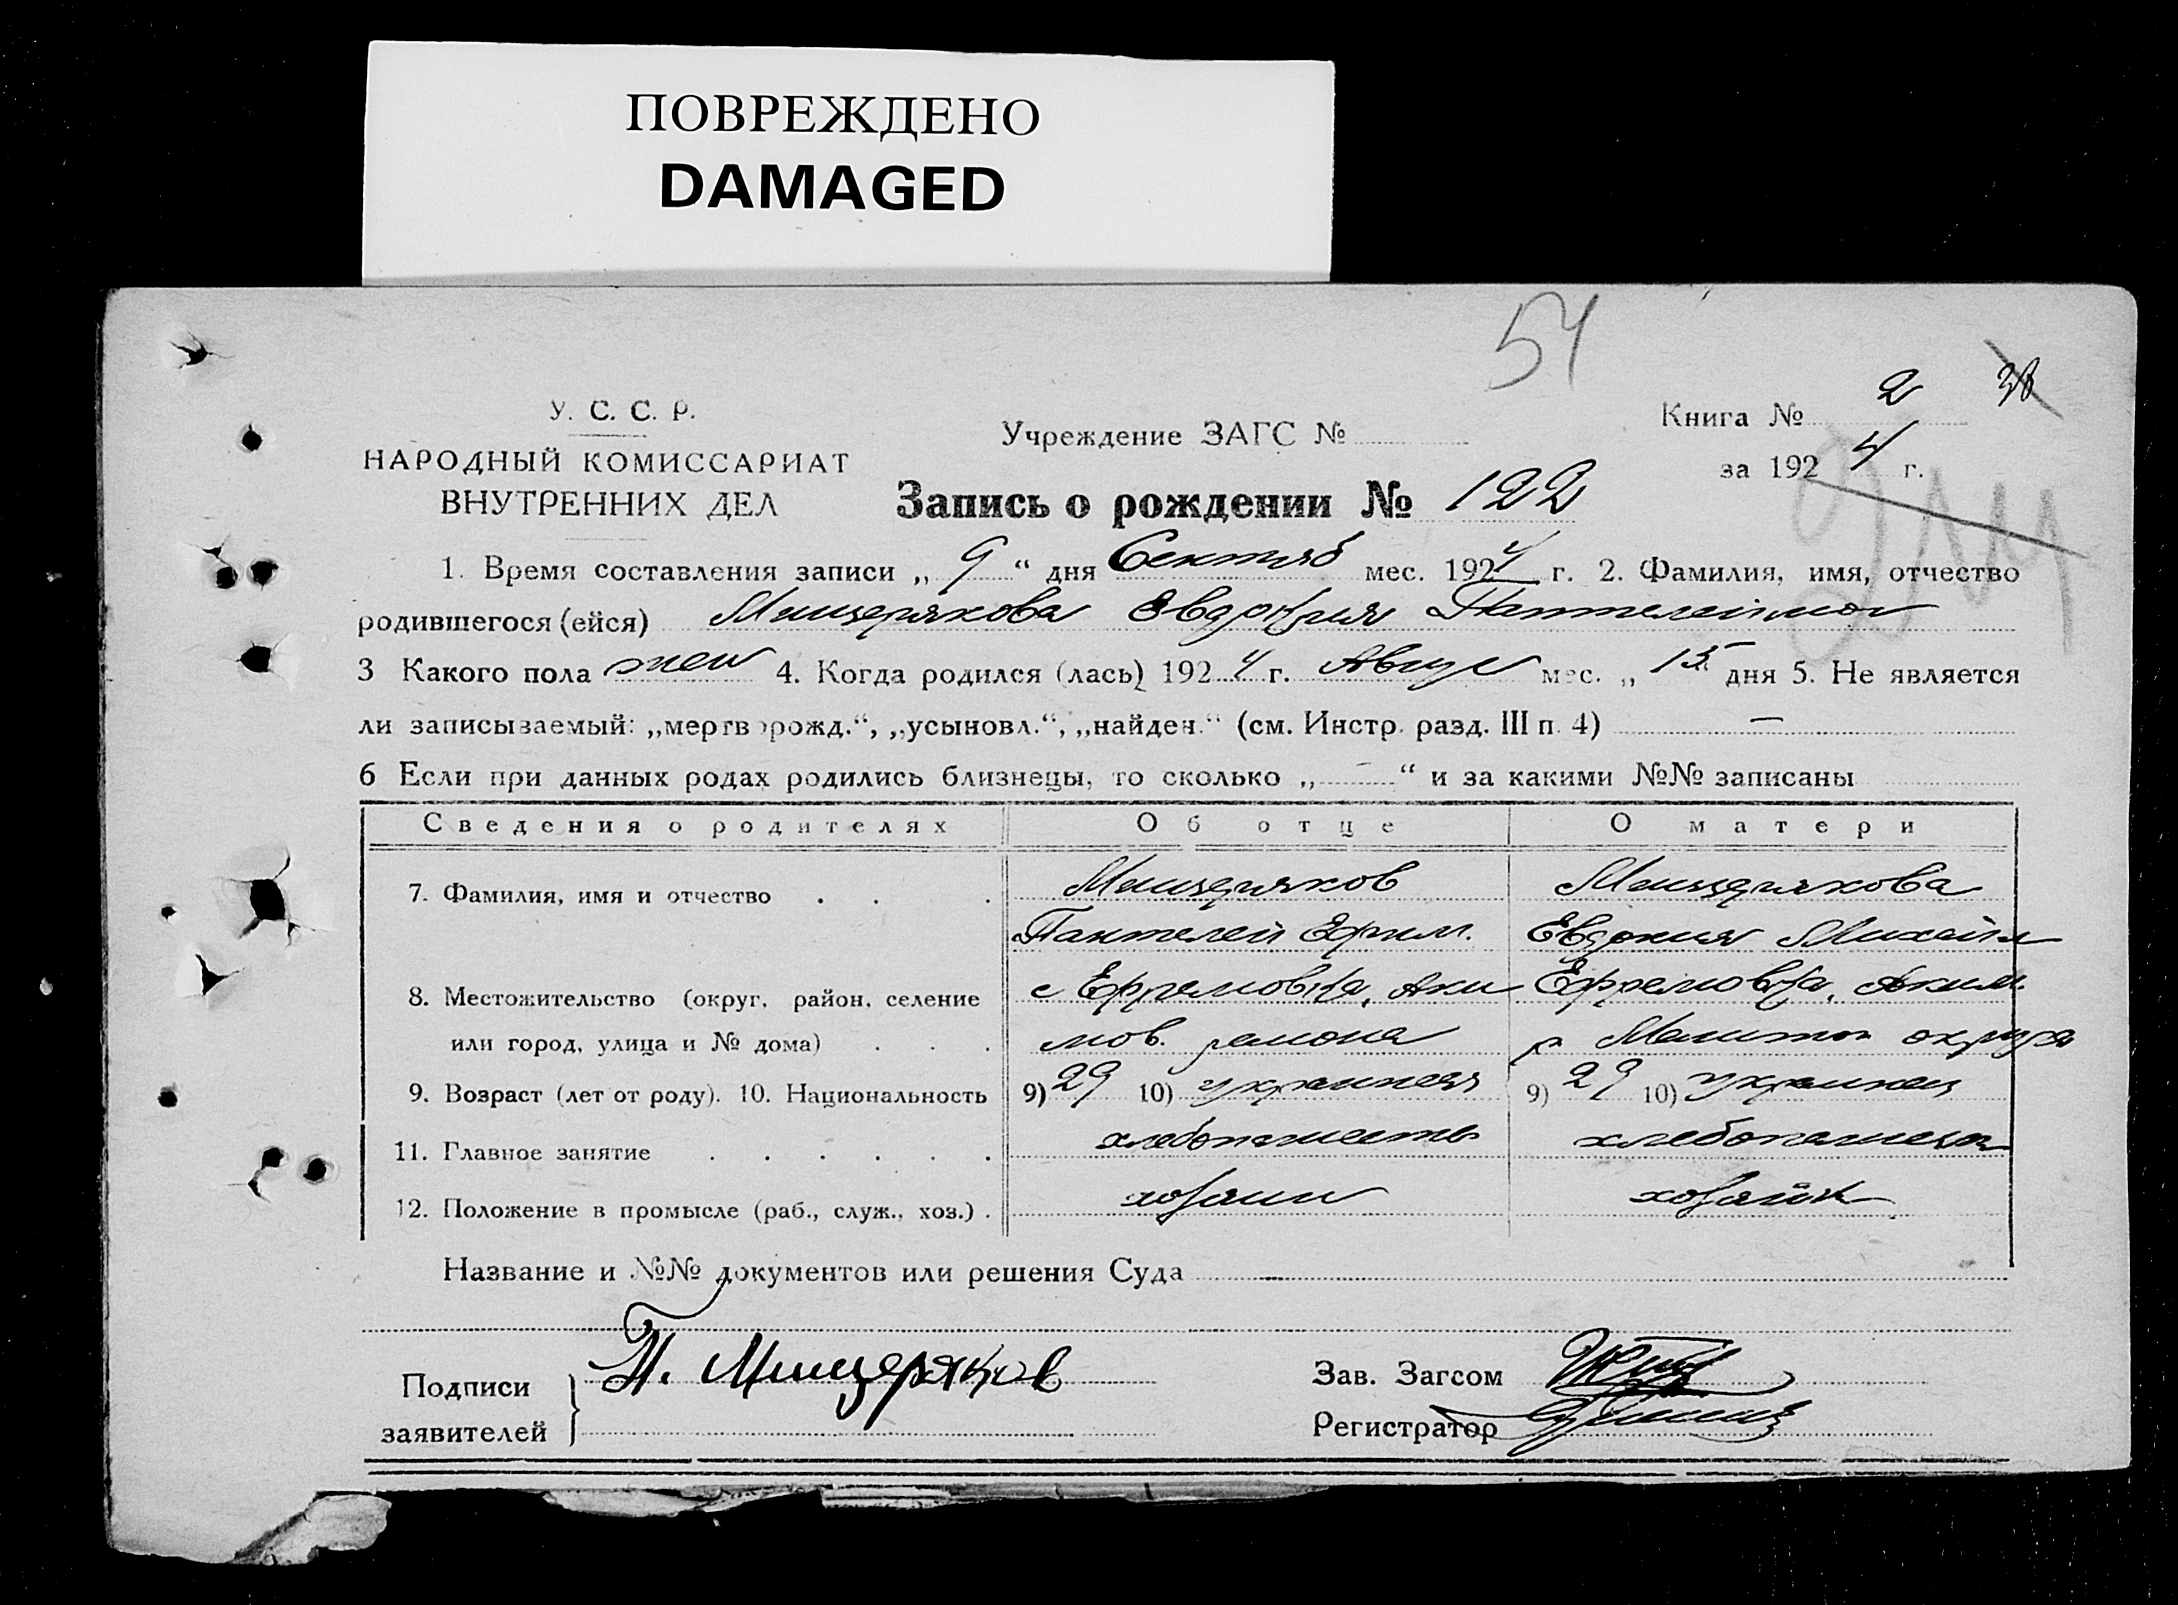 ПОВРЕЖДЕНО
DAMAGED
54
У. С. С. Р.
НАРОДНЫЙ КОМИССАРИАТ
ВНУТРЕННИХ ДЕЛ
Учреждение ЗАГС №
Книга № 2
за 1924 г.
Запись о рождении № 122
1. Время составления записи „ 9 “ дня Сентяб мес. 1924 г. 2. Фамилия, имя, отчество
родившегося (ейся) Мищерякова Евдокия Пантелеймон
3 Какого пола жен 4. Когда родился (лась) 1924 г. Авгус мес. „ 15 “ дня 5. Не является
ли записываемый: „мертворожд.“, „усыновл.“, „найден.“ (см. Инстр. разд. III п. 4) —
6 Если при данных родах родились близнецы, то сколько „ — “ и за какими №№ записаны
Сведения о родителях Об отце О матери
7. Фамилия, имя и отчество . . . Мищеряков Мищерякова
Пантелей Ефим. Евдокия Михайл
8. Местожительство (округ, район, селение с Ефремовка, Аки Ефремовка, Аким.
или город, улица и № дома) . . . мов. района р Мелитоп округа
9. Возраст (лет от роду). 10. Национальность 9) 29 10) украинец 9) 29 10) украинец
11. Главное занятие . . . . . . хлебопашеств хлебопашец
12. Положение в промысле (раб., служ., хоз.) . хозяин хозяйк
Название и №№ документов или решения Суда —
Подписи
заявителей
П. Мищеряков
Зав. Загсом
Регистратор